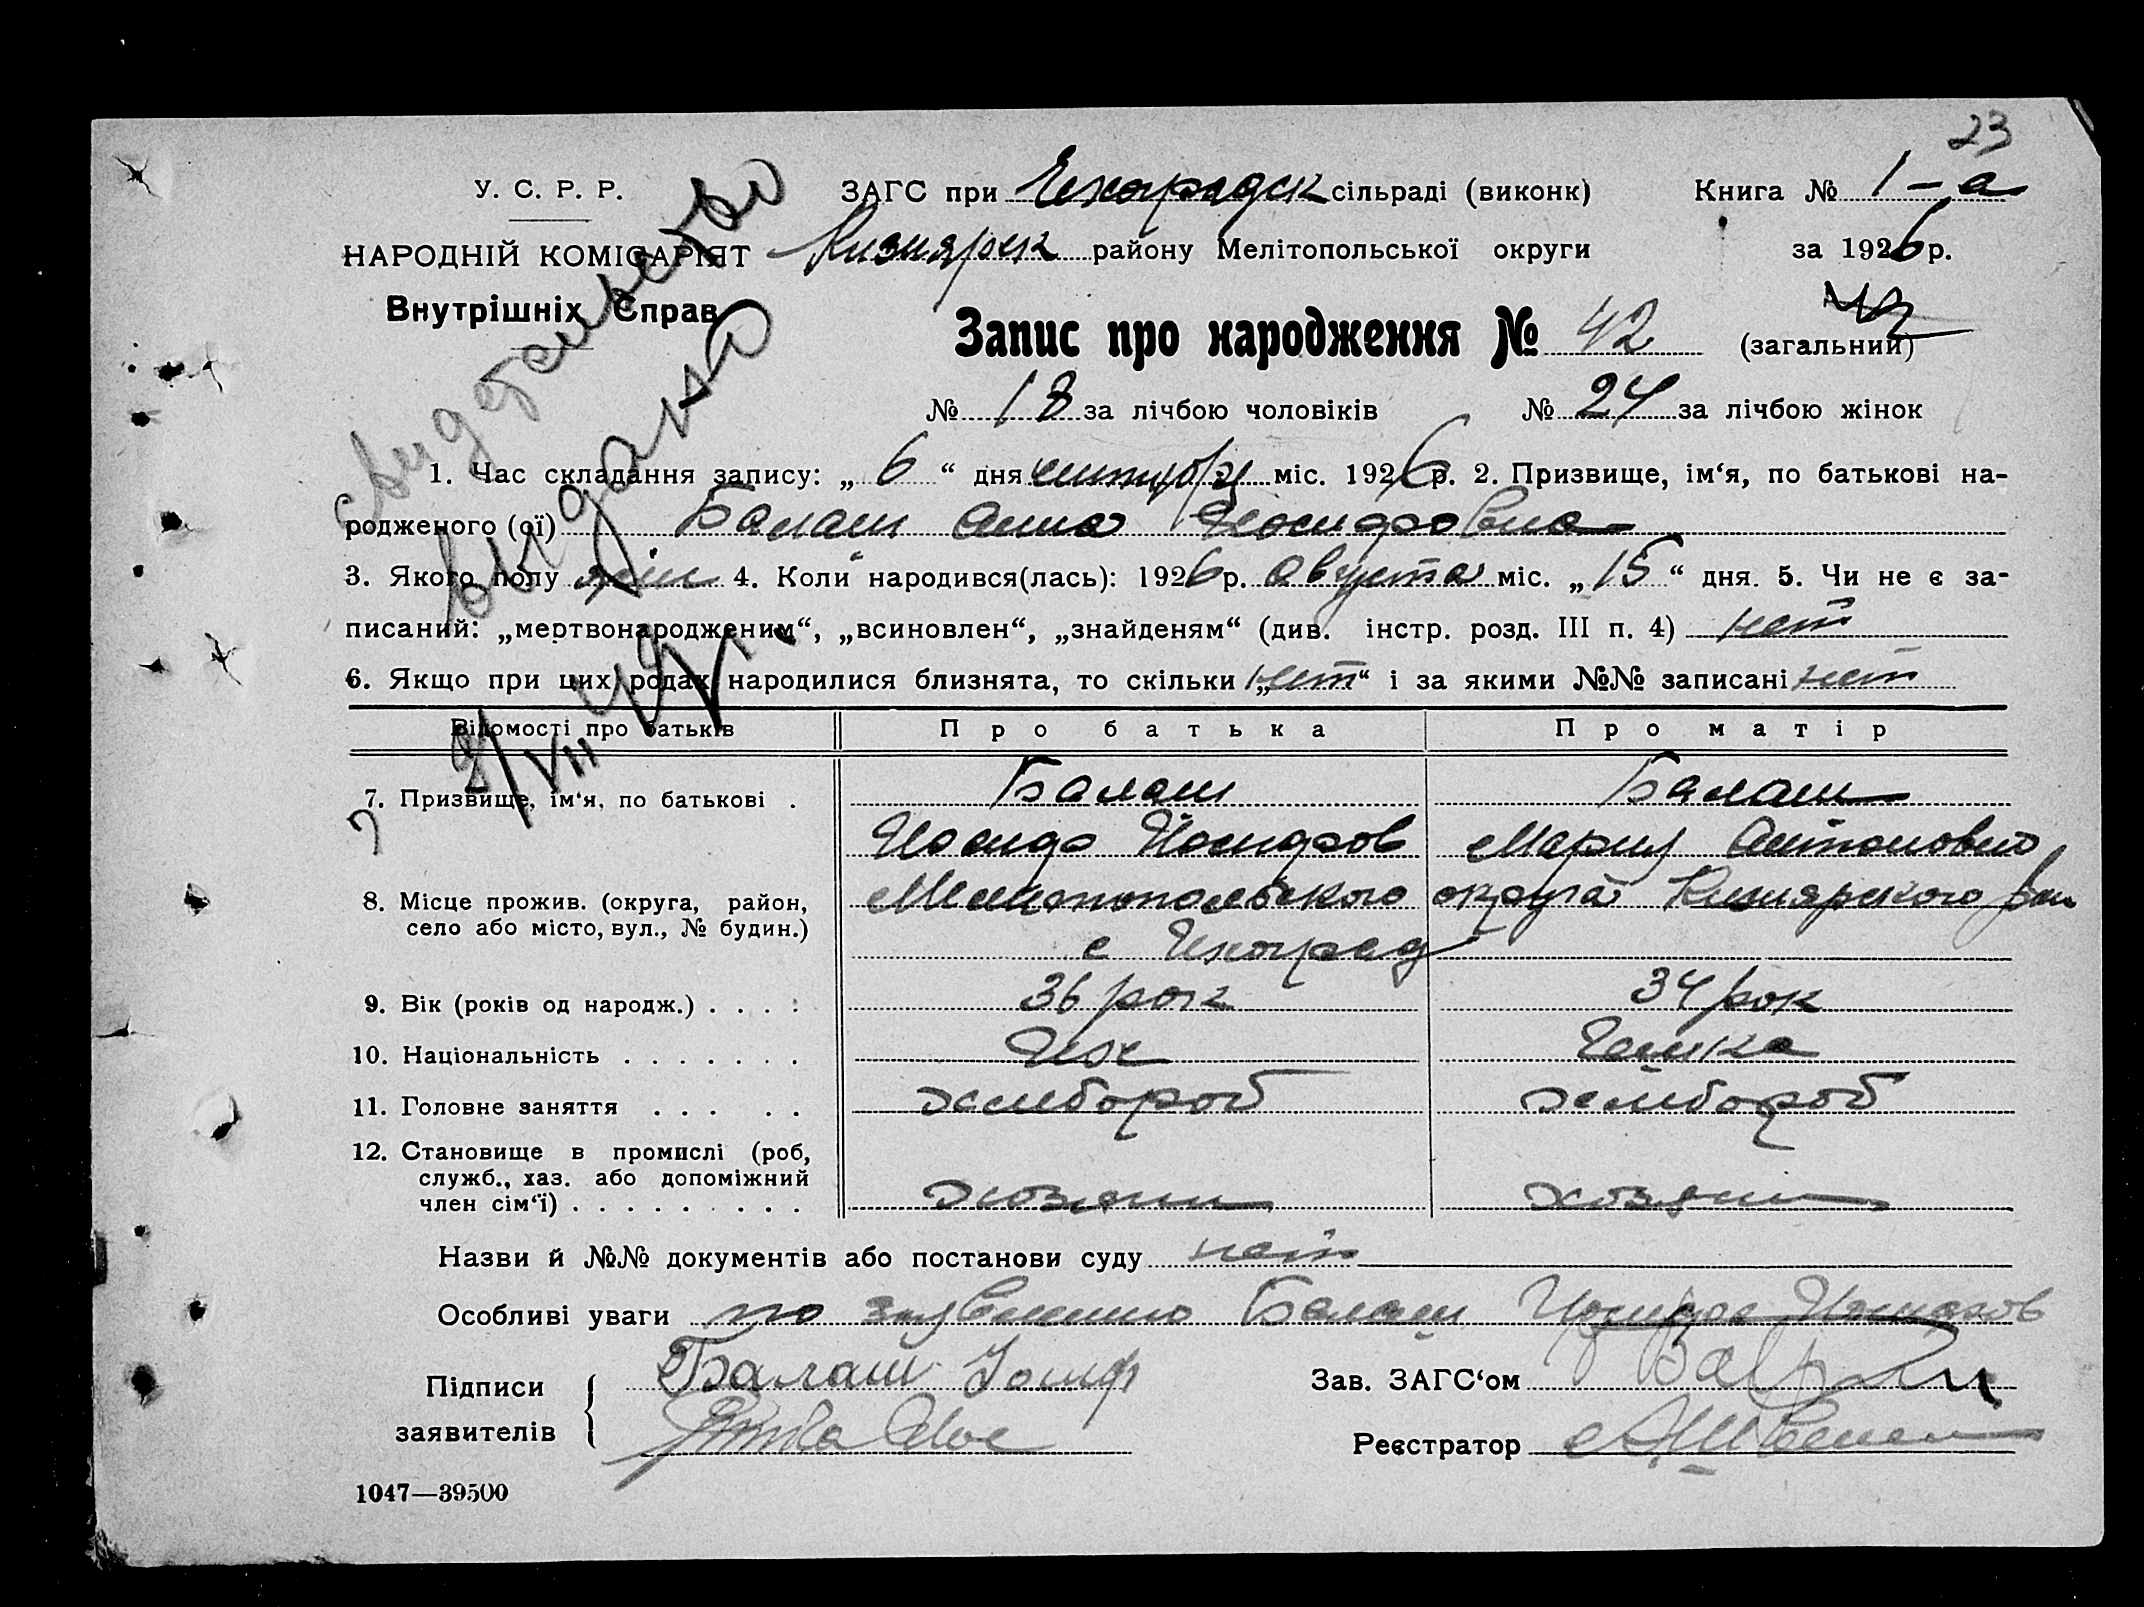 23
У. С. Р. Р.
ЗАГС при Чехоградск сільраді (виконк)
Книга № 1-а
НАРОДНІЙ КОМІСАРІЯТ
Кизиярск району Мелітопольської округи
за 1926 р.
Внутрішніх Справ
Запис про народження № 42 (загальний)
№ 18 за лічбою чоловіків № 24 за лічбою жінок
свидетельство
выдано
1. Час складання запису: „ 6 “ дня міс. 1926 р. 2. Призвище, ім‘я, по батькові на-
родженого (ої) Балаш Анна Иосифовна
3. Якого полу жін 4. Коли народився(лась): 1926 р. Августа міс. „ 15 “ дня. 5. Чи не є за-
писаний: „мертвонародженим“, „всиновлен“, „знайденям“ (див. інстр. розд. III п. 4) нет
6. Якщо при цих родах народилися близнята, то скільки „нет“ і за якими №№ записані нет
Відомості про батьків
Про батька
Про матір
7. Призвище, ім‘я, по батькові .
Балаш
Балаш
Иосиф Иосифов
Мария Антоновна
8. Місце прожив. (округа, район,
село або місто, вул., № будин.)
Мелитопольского округа Кизиярского рай
с Чехоград
9. Вік (років од народж.) . . . .
36 рок
34 рок
10. Національність . . . . . . .
Чех
Чешка
11. Головне заняття . . . . .
хлебороб
хлебороб
12. Становище в промислі (роб,
служб., хаз. або допоміжний
член сім‘ї) . . . . . . . . .
хозяин
хозяин
Назви й №№ документів або постанови суду нет
Особливі уваги по заявлению Балаш Иосифа Иосифов
Підписи
заявителів
Балаш Иосиф
Зав. ЗАГС‘ом
Реєстратор
1047—39500